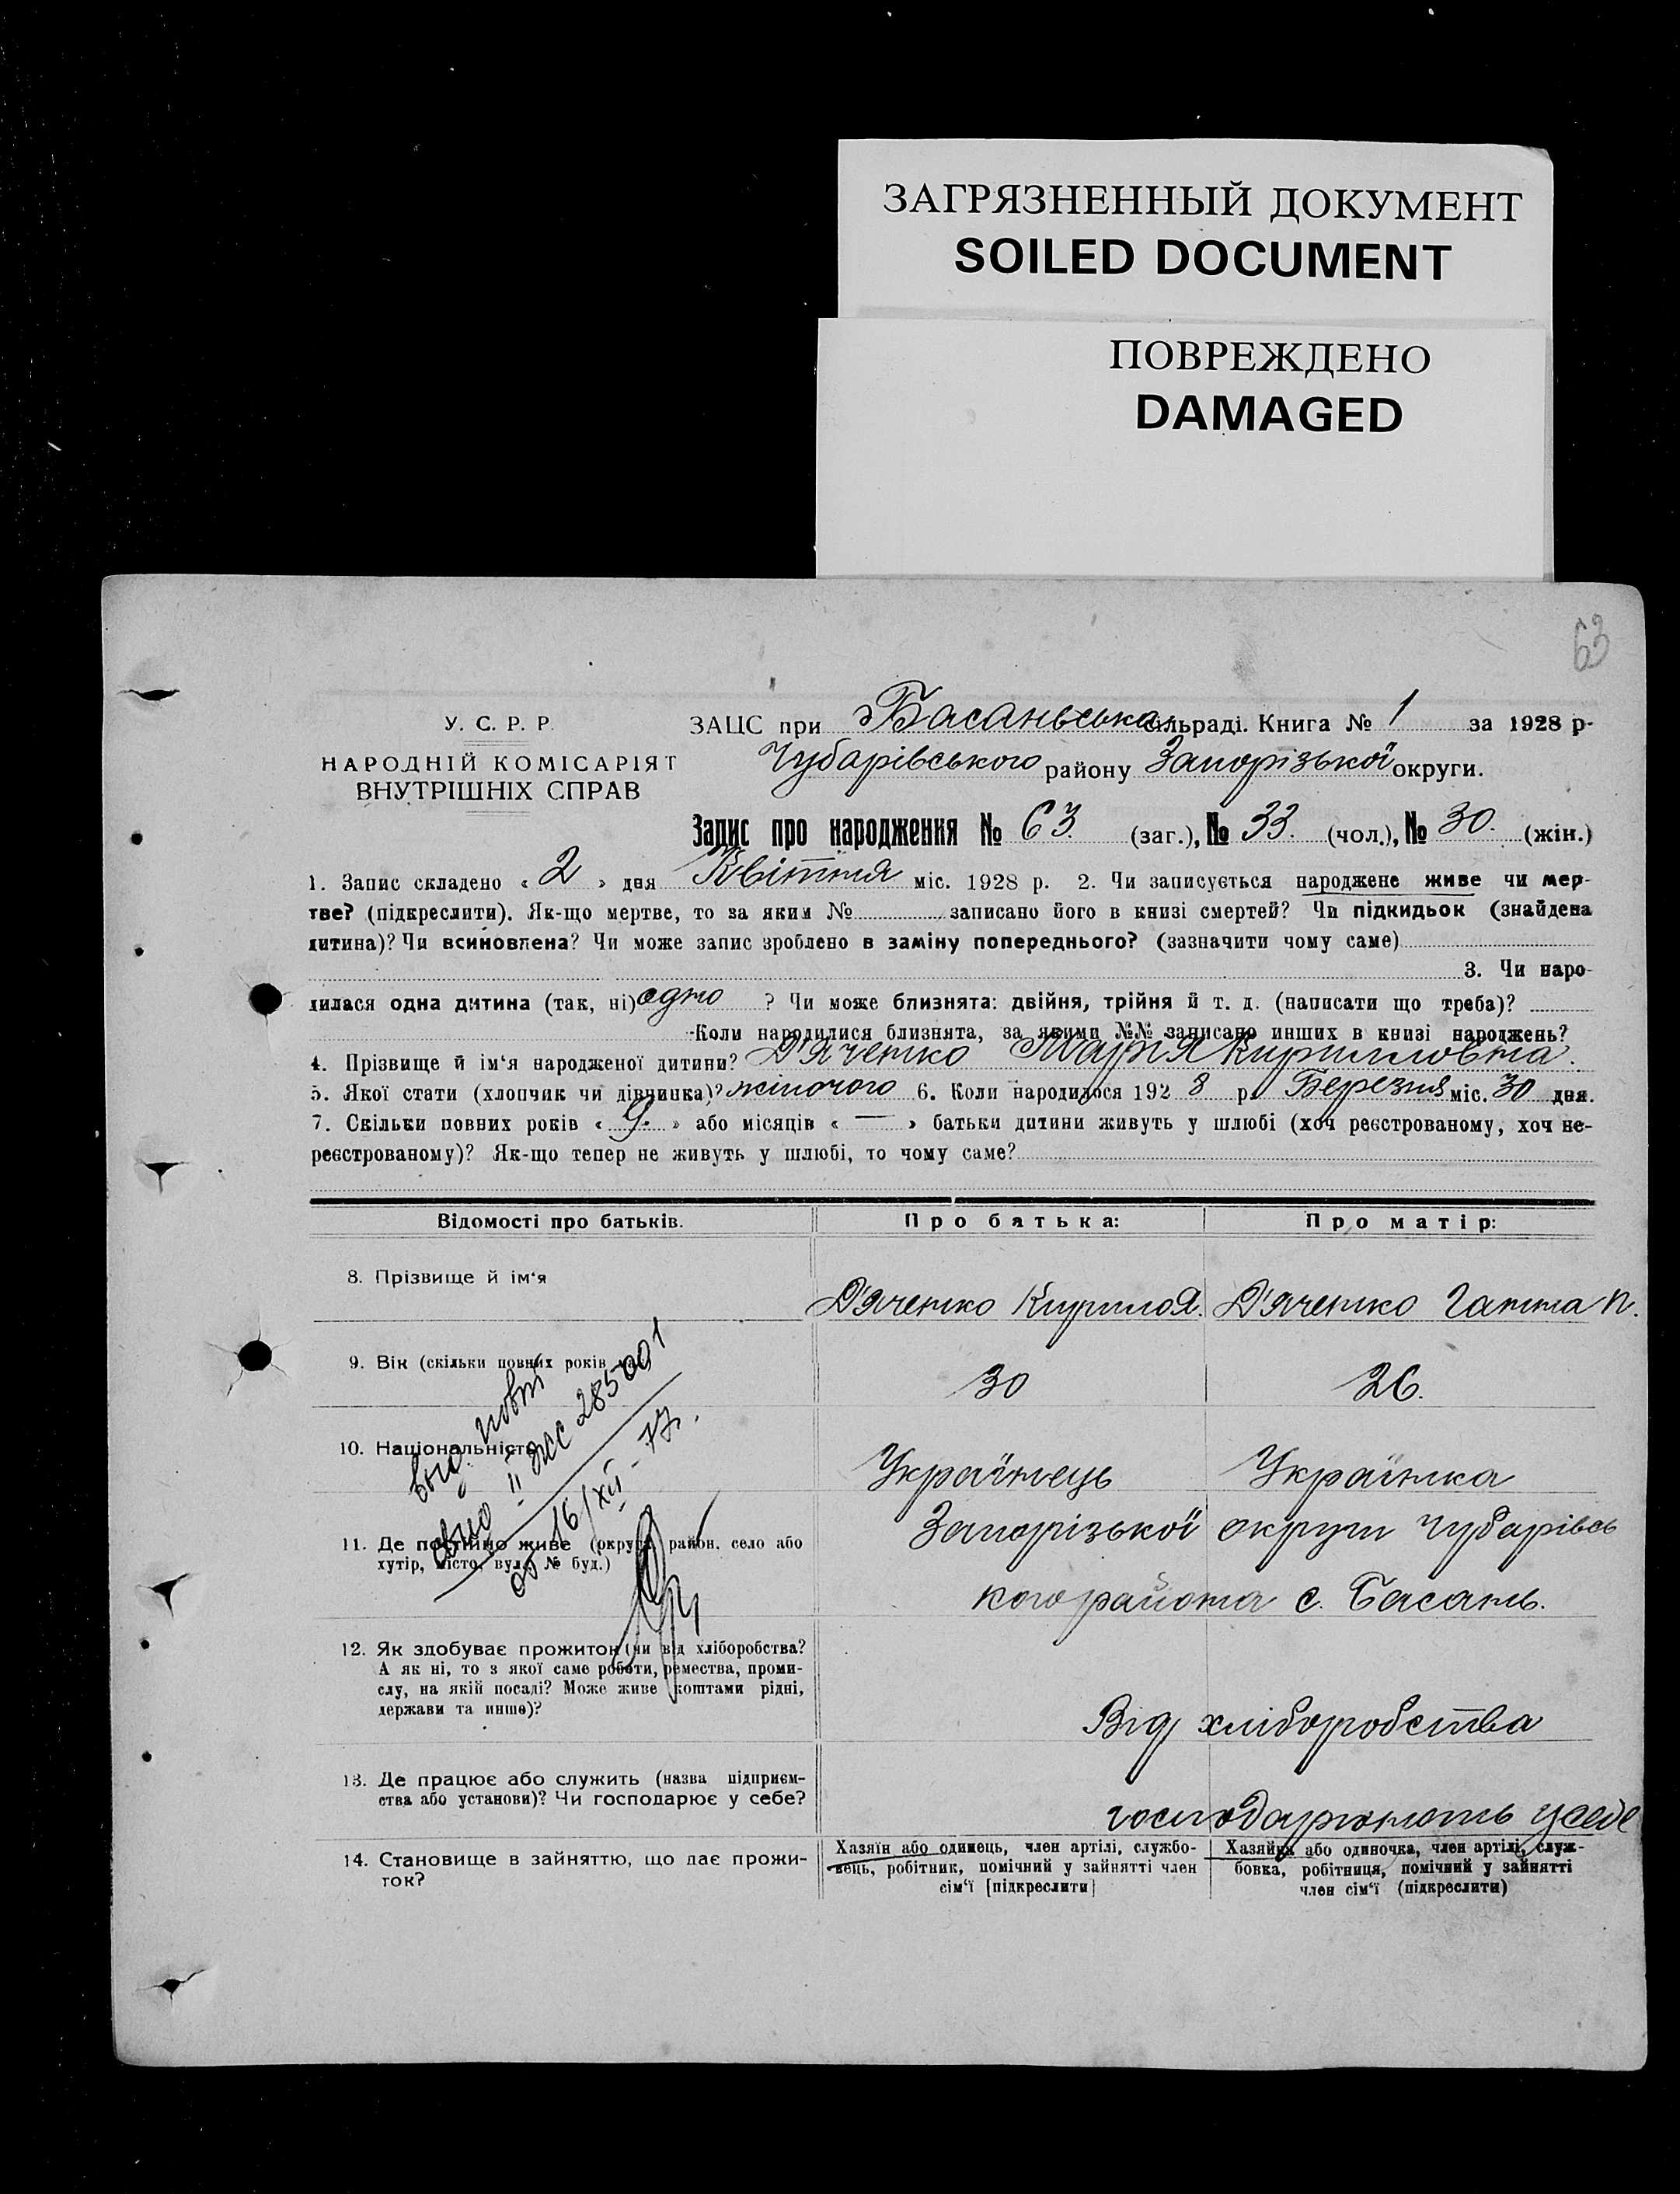 ЗАГРЯЗНЕННЫЙ ДОКУМЕНТ
SOILED DOCUMENT
ПОВРЕЖДЕНО
DAMAGED
63
У. С. Р. Р.
НАРОДНІЙ КОМІСАРІЯТ
ВНУТРІШНІХ СПРАВ
ЗАЦС при Басаньська сільраді. Книга № 1 за 1928 р.
Чубарівського району Запорізької округи.
Запис про народження № 63. (заг.), № 33. (чол.), № 30. (жін.)
1. Запис складено « 2 » дня Квітня міс. 1928 р. 2. Чи записується народжене живе чи мер-
тве? (підкреслити). Як-що мертве, то за яким № записано його в книзі смертей? Чи підкидьок (знайдена
дитина)? Чи всиновлена? Чи може запис зроблено в заміну попереднього? (зазначити чому саме)
3. Чи наро-
дилася одна дитина (так, ні) одно ? Чи може близнята: двійня, трійня й т. д. (написати що треба)?
Коли народилися близнята, за якими №№ записано инших в книзі народжень?
4. Прізвище й ім'я народженої дитини? Д'яченко Марія Кирилловна.
5. Якої стати (хлопчик чи дівчинка)? жіночого 6. Коли народилося 192 8 р. Березня міс. 30 дня.
7. Скільки повних років « 9. » або місяців « — » батьки дитини живуть у шлюбі (хоч реєстрованому, хоч не-
реєстрованому)? Як-що тепер не живуть у шлюбі, то чому саме?
Відомості про батьків. Про батька: Про матір:
8. Прізвище й ім'я Д'яченко Кирило Я. Д'яченко Ганна П.
9. Вік (скільки повних років має) 30 26.
10. Національність Українець Українка
11. Де постійно живе (округа, район, село або
хутір, місто, вул., № буд.)
Запорізької округи Чубарівсь
кого района с. Басань.
выд. повт
II ЖС 285001
от 16/XII-77.
12. Як здобуває прожиток (чи від хліборобства?
А як ні, то з якої саме роботи, ремества, проми-
слу, на якій посаді? Може живе коштами рідні,
держави та инше)?
Від хліборобства
13. Де працює або служить (назва підприєм-
ства або установи)? Чи господарює у себе?
господарюють у себе
14. Становище в зайняттю, що дає прожи-
ток?
Хазяїн або одинець, член артілі, службо-
вець, робітник, помічний у зайнятті член
сім'ї [підкреслити]
Хазяйка або одиночка, член артілі, служ-
бовка, робітниця, помічний у зайнятті
член сім'ї (підкреслити)